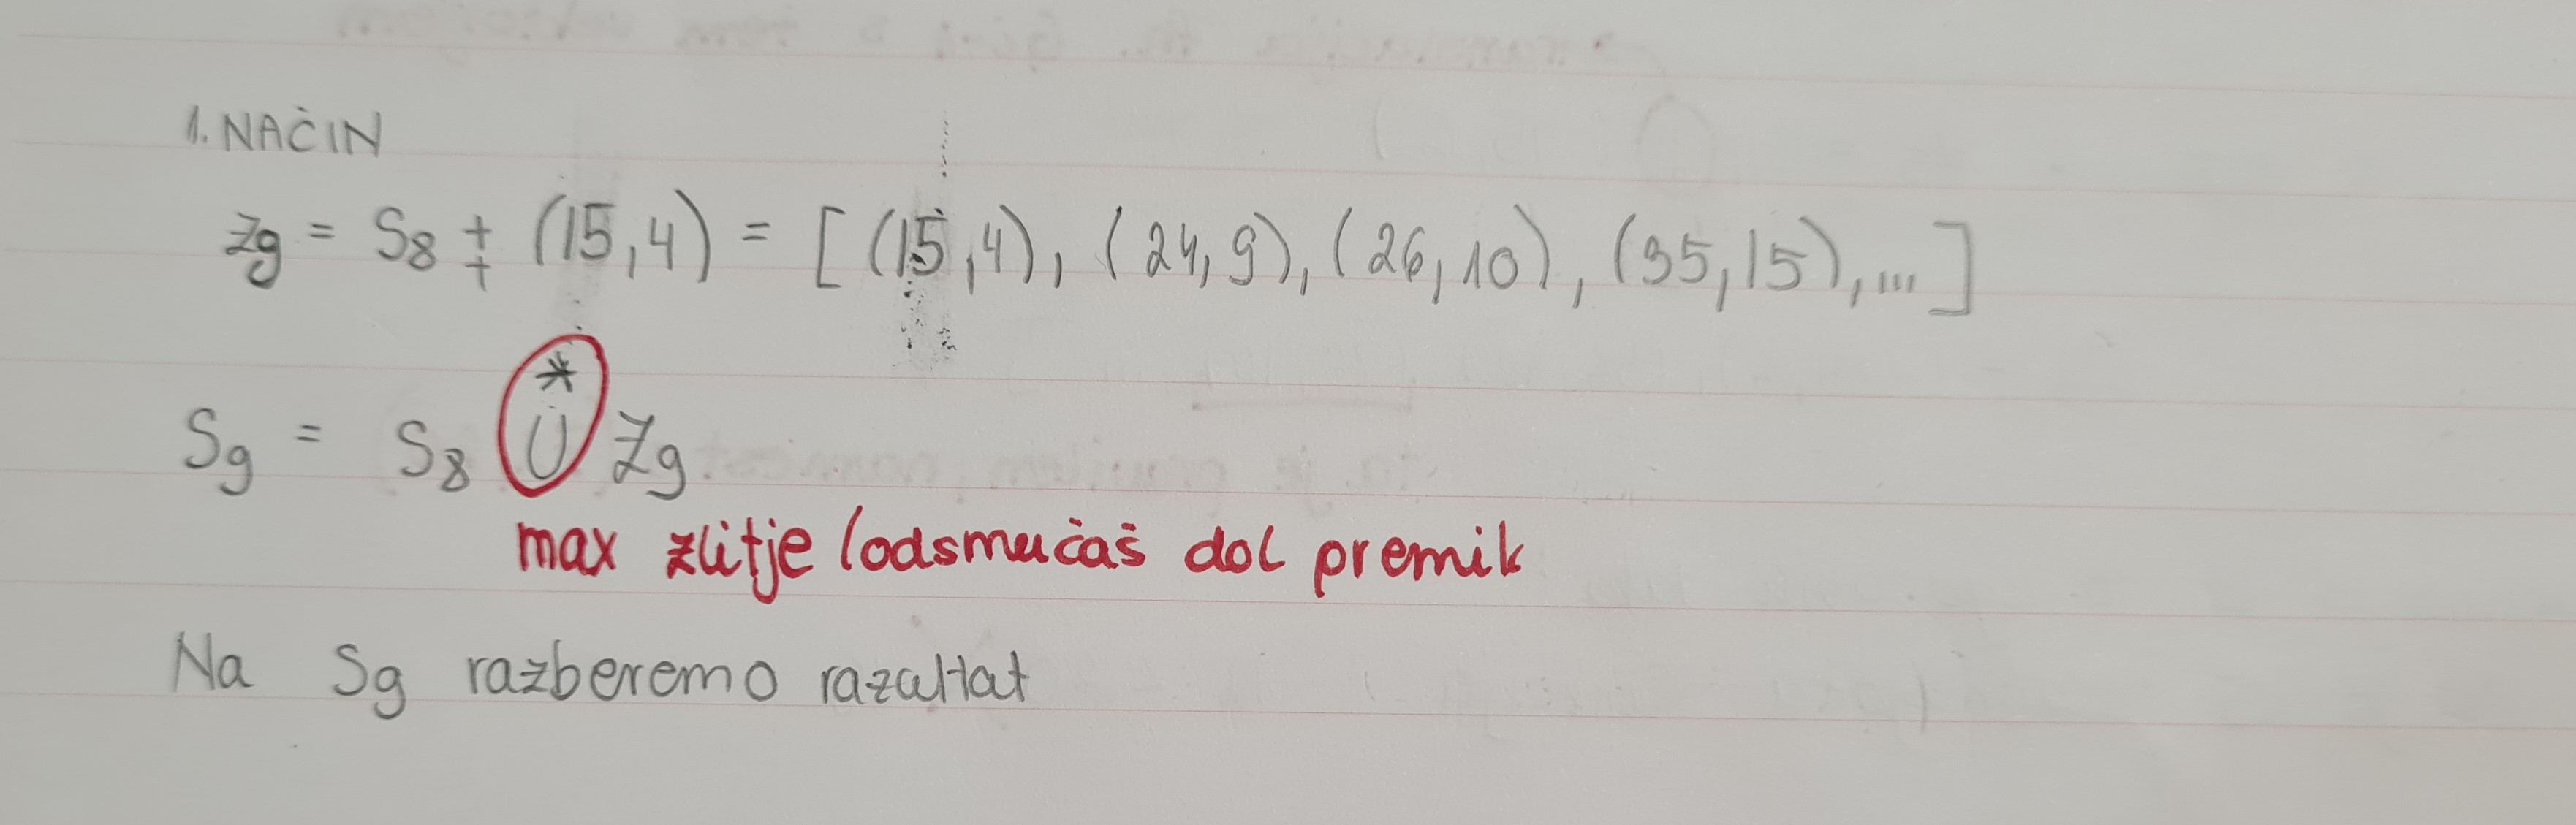 1. NAČIN
Zg = S8 ‡ (15,4) = [(15,4), (24,9), (26,10), (35,15), ...]
Sg = S8 Ů* Zg
max zlitje (odsmučaš dol premik
Na Sg razberemo razultat